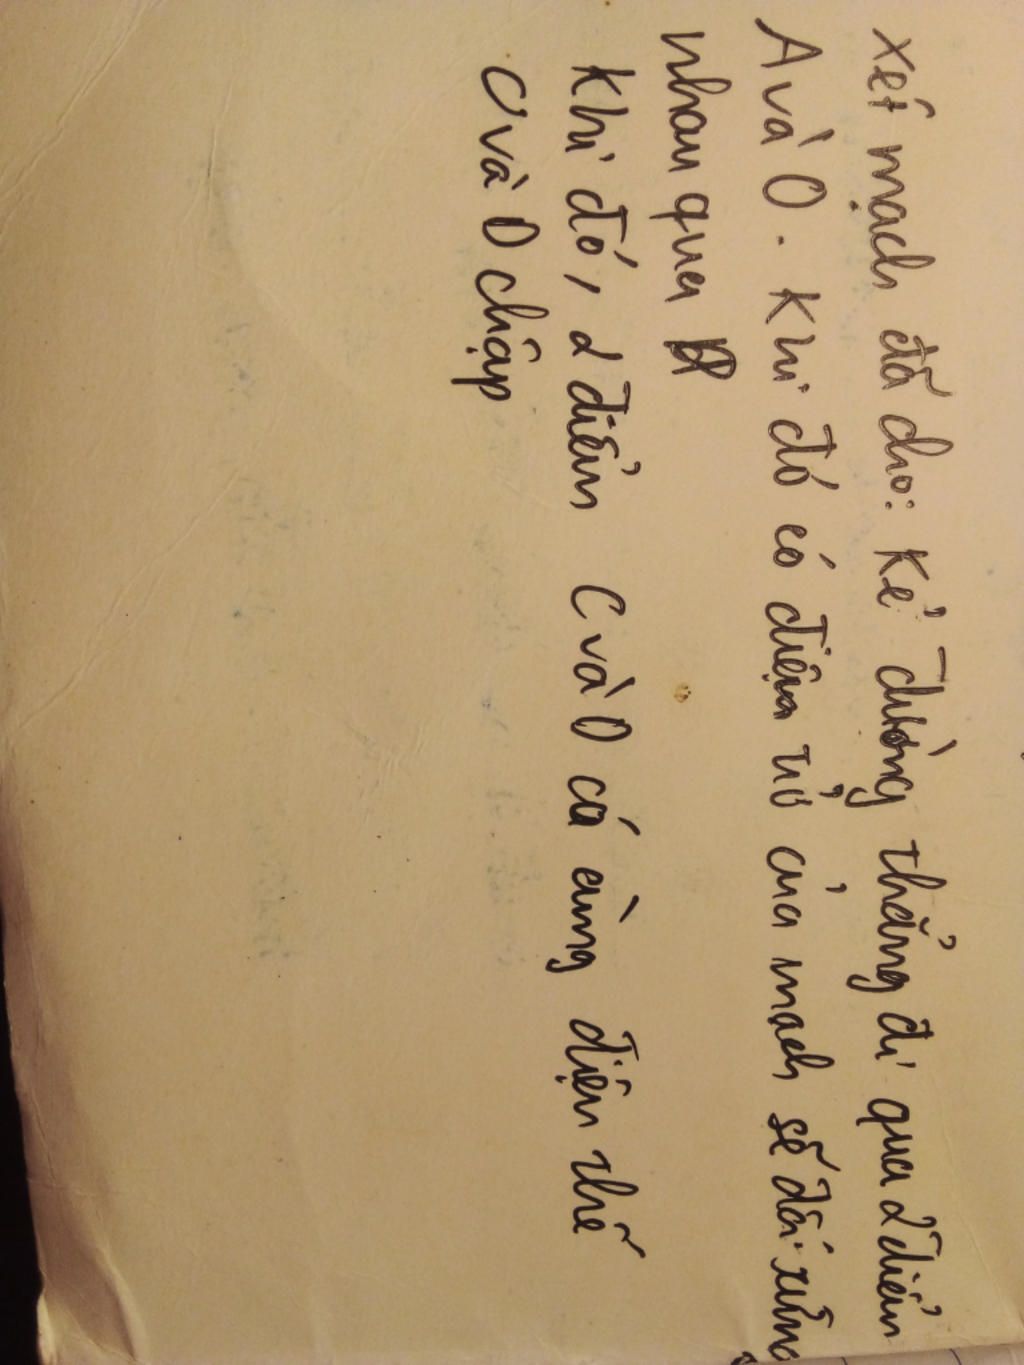 Xét mạch đã cho: Kẻ đường thẳng đi qua 2 điểm
A và O. Khi đó có điện trở của mạch sẽ đối xứng
nhau qua
Khi đó, 2 điểm C và D có cùng điện thế
C và D chập